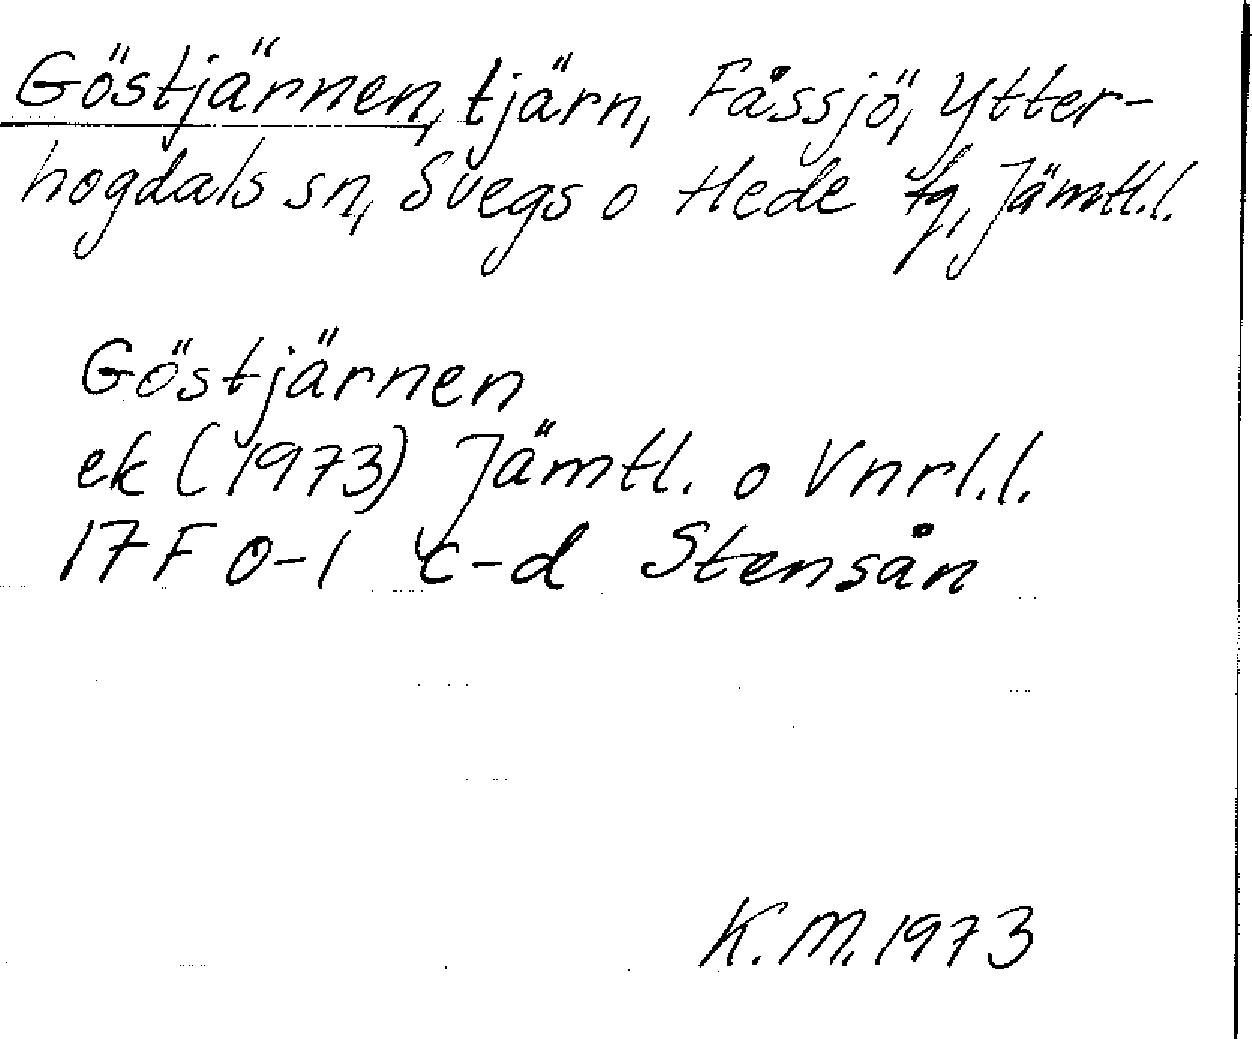 Göstjärnen, tjärn, Fåssjö, Ytter-
hogdals sn, Svegs o Hede tg, Jämtl.l.
Göstjärnen
ek (1973) Jämtl. o Vnrl.l.
17F 0-1 c-d Stensån
K.M. 1973